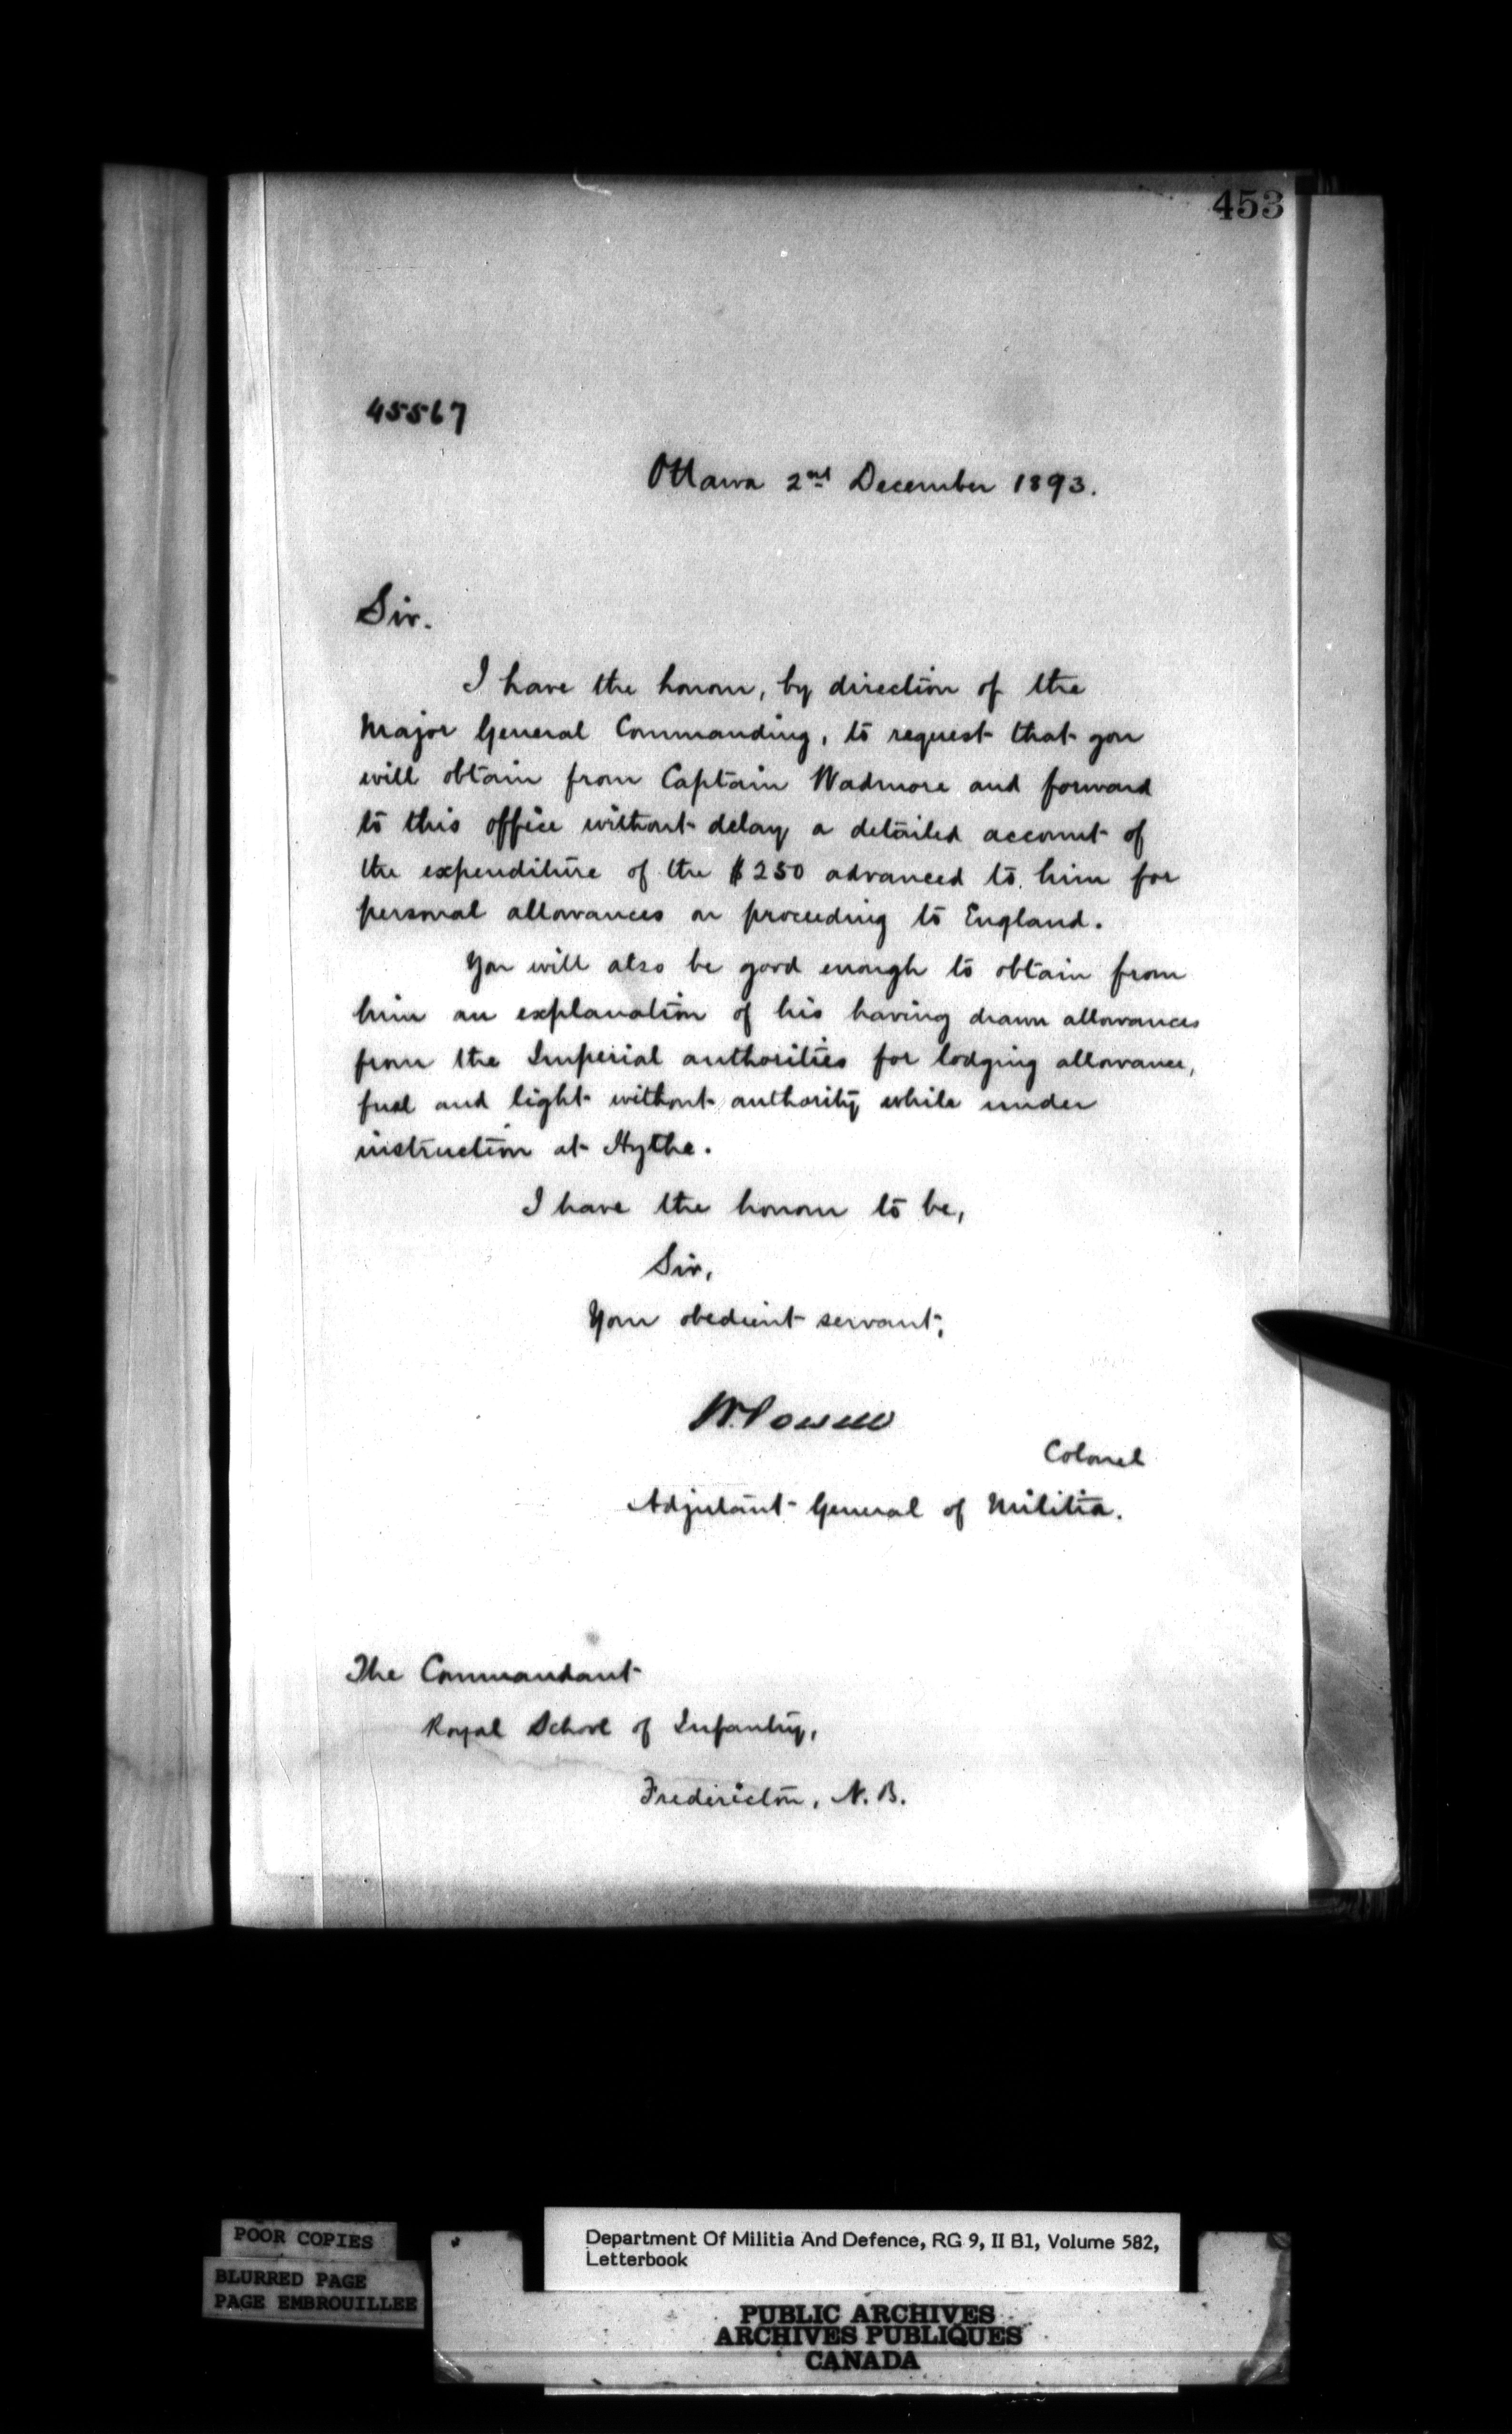 453
45567
Ottawa 2nd December 1893.
Sir.
I have the honour, by direction of the
Major General Commanding, to request that you
will obtain from Captain Wadmore and forward
to this office without delay a detailed account of
the expenditure of the $250 advanced to him for
personal allowances on proceeding to England.
You will also be good enough to obtain from
him an explanation of his having drawn allowances
from the Imperial authorities for lodging allowance,
fuel and light without authority while under
instruction at Hythe.
I have the honour to be,
Sir,
Your obedient servant,
W. Powell
Colonel
Adjutant General of Militia.
The Commandant
Royal School of Infantry,
Fredericton, N.B.
POOR COPIES
BLURRED PAGE
PAGE EMBROUILLEE
Department Of Militia And Defence, RG 9, II B1, Volume 582,
Letterbook
PUBLIC ARCHIVES
ARCHIVES PUBLIQUES
CANADA